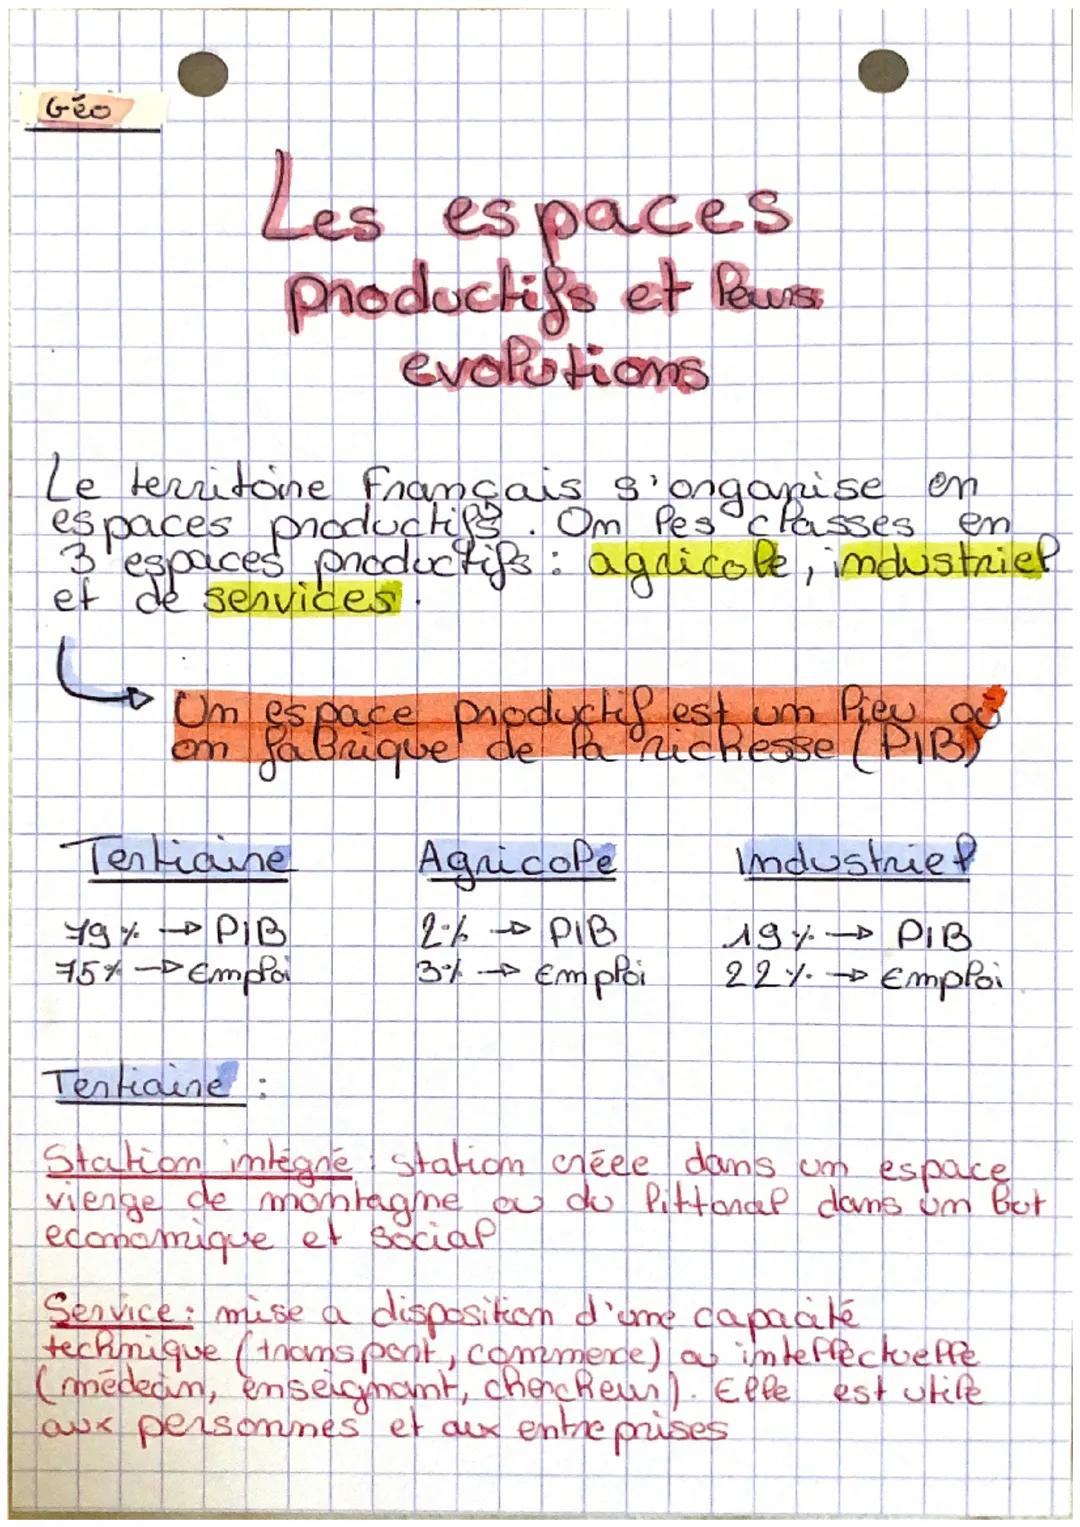 Géo
Les espaces
productifs et leurs
evolutions
Le territoire Français s'organise en
espaces productifs. On les classes en
3 espaces productifs : agricole, industriel
et de services.
Un espace productif est un lieu où
on fabrique de la richesse (PIB)
Tertiaire Agricole Industriel
79% → PIB 2% → PIB 19% → PIB
75% → Emploi 3% → Emploi 22% → Emploi
Tertiaire :
Station intégré : station créee dans un espace
vierge de montagne ou du littoral dans un but
economique et social
Service : mise a disposition d'une capacité
technique (transport, commerce) ou intellectuelle
(médecin, enseignant, chercheur). Elle est utile
aux personnes et aux entreprises